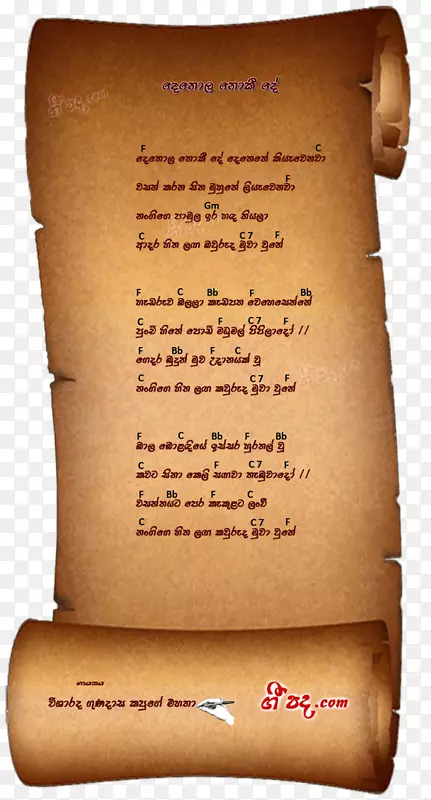 දෙතොල නොකී දේ
ගී පද.com
F C
දෙතොල නොකී දේ දෙනෙතේ කියැවෙනවා
F
වසන් කරන සිත මුහුනේ ලියැවෙනවා
Gm
නංගිගෙ පාමුල ඉර හඳ තියලා
C C7 F
ආදර හිත ලඟ ඔවුරුද මුවා වුනේ
F C Bb F Bb
හැඩරුව බලලා කැඩපත වෙහෙසෙන්නේ
C F C7 F
පුංචි හිතේ පොඩි මධුමල් පිපිලාදෝ //
F Bb F C
ගෙදර මුදුන් මුව උදානයක් වූ
C C7 F
නංගිගෙ හිත ලඟ කවුරුද මුවා වුනේ
F C Bb F Bb
මාල බොළඳියේ ඉස්සර හුරතල් වූ
C F C7 F
කවට සිනා කෙලි සඟවා තැබුවාදෝ //
F Bb F C
වසන්තයට පෙර කැකුළට ලංවී
C C7 F
නංගිගෙ හිත ලඟ කවුරුද මුවා වුනේ
ගායනය
විශාරද ගුණදාස කපුගේ මහතා
ගී පද.com